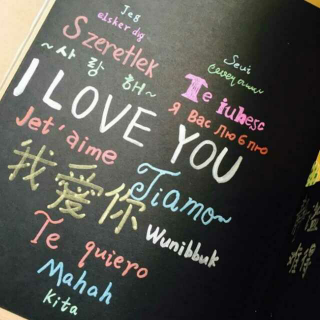 Jeg
elsker dig
Szeretlek
Seni
~사랑해~
Te iubesc
I LOVE YOU
Я вас люблю
Jet'aime
我爱你
Tiamo~
Wunibbuk
Te quiero
Mahah
Kita